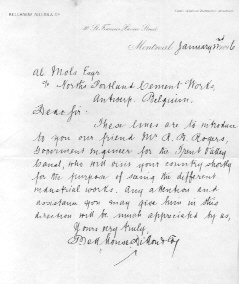 Montreal January
Al Mols Esqr
c/o North's Portland Cement Works,
Antwerp. Belgium.
Dear Sir:
These lines are to introduce
to you our friend Mr R. B. Rogers,
Government engineer for the Trent Valley
Canal, who will visit your country shortly
for the purpose of seeing the different
industrial works. Any attention and
assistance you may give him in this
direction will be much appreciated by us.
Yours very truly,